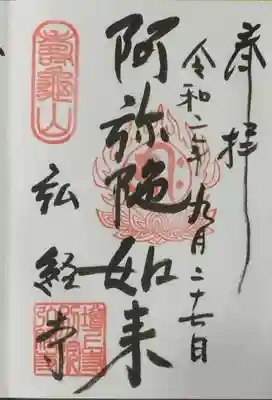 奉拝
令和二年九月二十七日
阿弥陀如来
壽龜山
弘経寺